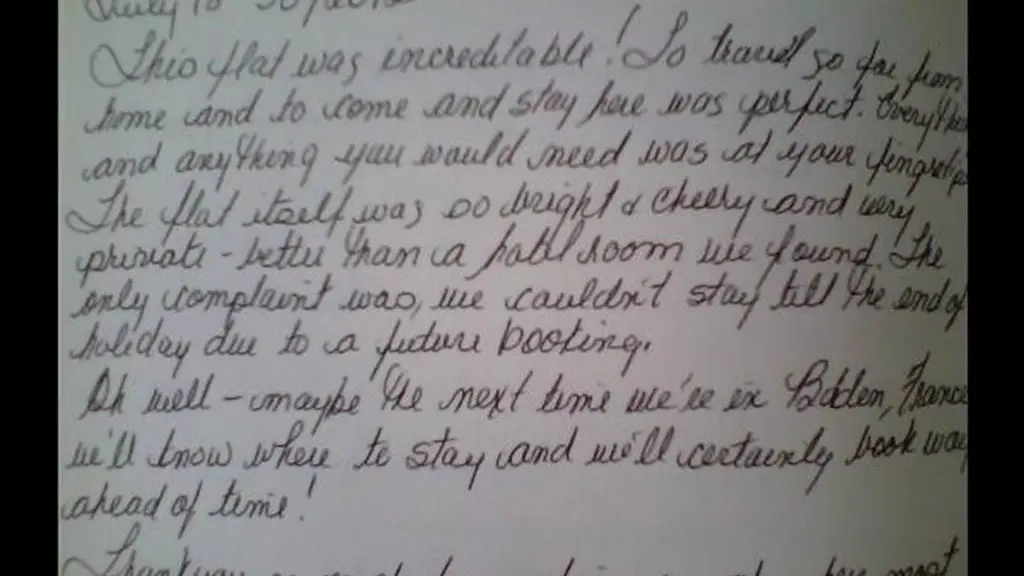 July 18 - 30
This flat was increditable! To travel so far from
home and to come and stay here was perfect. Everything
and anything you would need was at your fingertips
The flat itself was so bright & cheery and very
private - better than a hotel room we found. The
only complaint was, we couldn't stay till the end of
holiday due to a future booking.
Oh well - maybe the next time we're in France
we'll know where to stay and we'll certainly book way
ahead of time!
Thankyou most